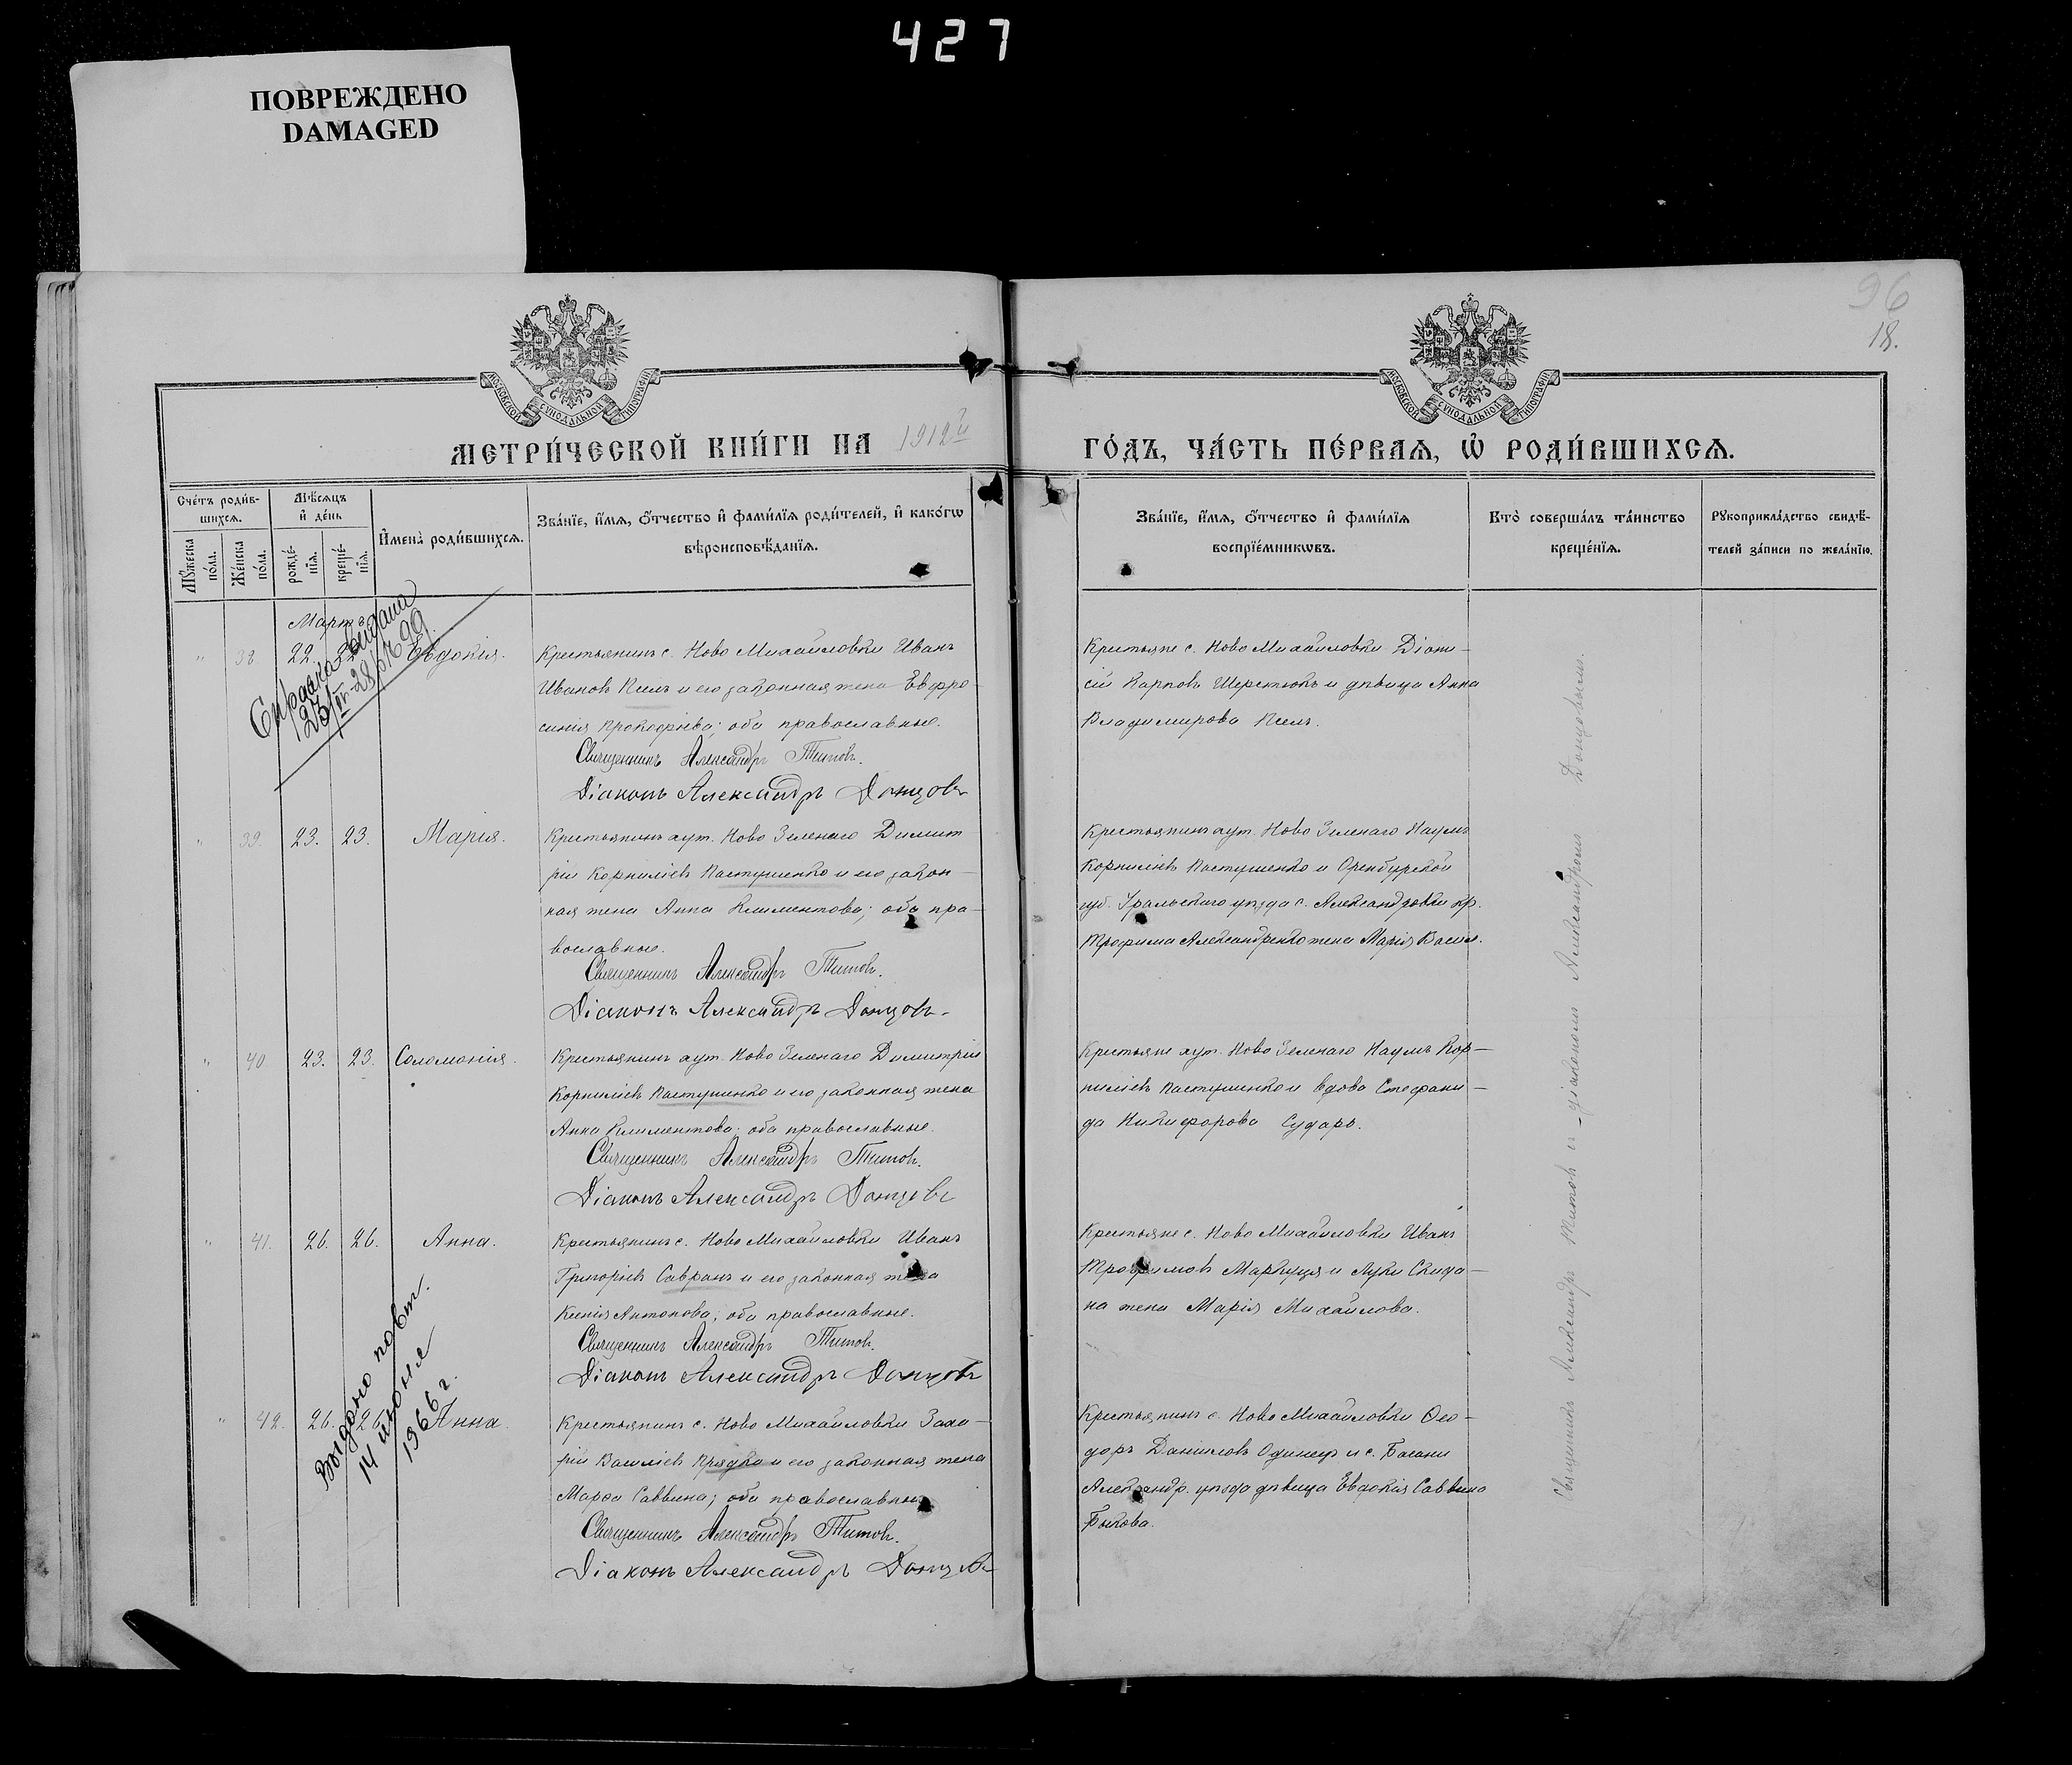 427
ПОВРЕЖДЕНО
DAMAGED
96
18.
МОСКОВСКОЙ СѴНОДАЛЬНОЙ ТИПОГРАФІИ
МОСКОВСКОЙ СѴНОДАЛЬНОЙ ТИПОГРАФІИ
МЕТРИ́ЧЕСКОЙ КНИ́ГИ НА 1912й
ГО́ДЪ, ЧА́СТЬ ПЕ́РВАѦ, Ѡ҆ РОДИ́ВШИХСѦ.
Сче́тъ роди́в-
шихсѧ.
Мѣ́сѧцъ
и҆ де́нь
Мꙋ́жеска
по́ла.
Же́нска
по́ла.
рожде́-
нїѧ.
креще́-
нїѧ.
И҆мена̀ роди́вшихсѧ.
Зва́нїе, и҆́мѧ, ѻ҆́тчество и҆ фами́лїѧ роди́телей, и҆ како́гѡ
вѣроисповѣ́данїѧ.
Зва́нїе, и҆́мѧ, ѻ҆́тчество и҆ фами́лїѧ
воспрїе́мникѡвъ.
Кто̀ соверша́лъ та́инство
креще́нїѧ.
Рꙋкоприкла́дство свидѣ́-
телей за́писи по жела́нїю.
Мартъ
" 38. 22. 22. Евдокія.
Справка выдана
Крестьянинъ с. Ново Михайловки Иванъ
Ивановъ Киль и его законная жена Евфро-
синія Прокофіева; оба православные.
Священникъ Александръ Титовъ.
Діаконъ Александръ Донцовъ
Крестьяне с. Ново Михайловки Діони-
сій Карповъ Шерстюкъ и дѣвица Анна
Владимирова Киль.
" 39. 23. 23. Марія.
Крестьянинъ хут. Ново Зеленаго Димит
рій Корниліевъ Пастушенко и его закон-
ная жена Анна Климентова; оба пра-
вославные.
Священникъ Александръ Титовъ.
Діаконъ Александръ Донцовъ.
Крестьянинъ хут. Ново Зеленаго Наумъ
Корниліевъ Пастушенко и Оренбургской
губ. Уральскаго уѣзда с. Александровки кр.
Трофима Александренко жена Марія Васил.
" 40. 23. 23. Соломонія.
Крестьянинъ хут. Ново Зеленаго Димитрій
Корниліевъ Пастушенко и его законная жена
Анна Климентова; оба православные.
Священникъ Александръ Титовъ.
Діаконъ Александръ Донцовъ
Крестьяне хут. Ново Зеленаго Наумъ Кор-
ниліевъ Пастушенко и вдова Стефани-
да Никифорова Сударь.
" 41. 26. 26. Анна.
Крестьянинъ с. Ново Михайловки Иванъ
Григоріевъ Савранъ и его законная жена
Ксенія Антонова; оба православные.
Священникъ Александръ Титовъ.
Діаконъ Александръ Донцовъ
Крестьяне с. Ново Михайловки Иванъ
Трофимовъ Маркуця и Луки Скида-
на жена Марія Михайлова.
" 42. 26. 26. Анна.
Выдано повт.
14 июня
1966 г.
Крестьянинъ с. Ново Михайловки Заха-
рій Василіевъ Прядка и его законная жена
Марфа Саввина; оба православные
Священникъ Александръ Титовъ.
Діаконъ Александръ Донцовъ
Крестьянинъ с. Ново Михайловки Ѳео-
доръ Даніиловъ Одинецъ и с. Басани
Александр. уѣзда дѣвица Евдокія Саввина
Быкова.
Священникъ Александръ Титовъ и діакономъ Александромъ Донцовымъ.